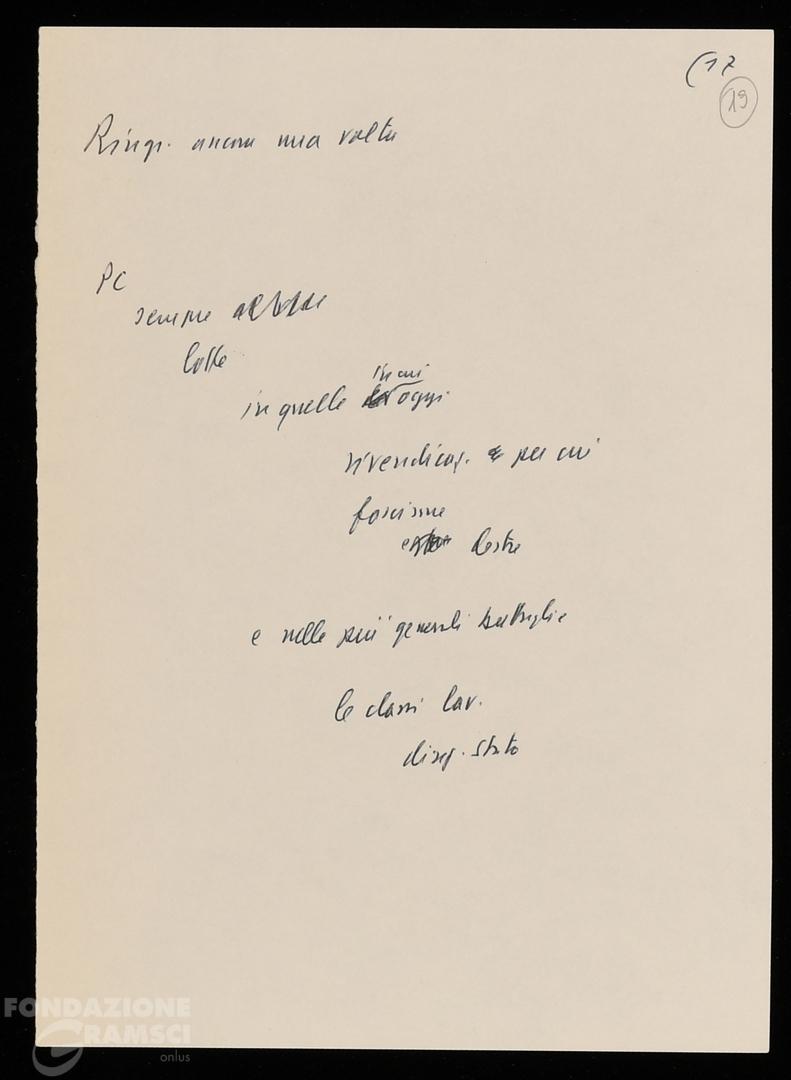 (17
19
Ringr. ancora una volta
PC
sempre
lotte
in cui
in quelle oggi
rivendicaz. per cui
fascismo
destre
e nelle più generali battaglie
le classi lav.
direz. Stato
FONDAZIONE
GRAMSCI
onlus